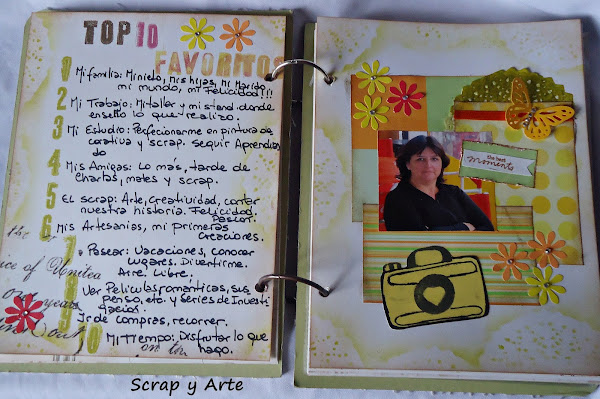 TOP 10
FAVORITOS
1 Mi familia: Mi nieto, Mis hijas, Mi Marido
mi mundo, mi Felicidad!!!
2 Mi Trabajo: Mi taller y mi stand donde
enseño lo que realizo.
3 Mi Estudio: Perfeccionarme en pintura de
corativa y scrap. seguir Aprendien
do
4 Mis Amigas: Lo más, tarde de
charlas, mates y scrap.
5 EL scrap: Arte, creatividad, contar
nuestra historia. Felicidad.
6 Mis Artesanías, mi primeras
creaciones.
7 Pasear: Vacaciones, conocer
Lugares. Divertirme.
Aire. Libre.
8 Ver Películas románticas, sus
penso, etc. y series de Investi
gación.
9 Ir de compras, recorrer.
10 Mi Tiempo: Disfrutar lo que
hago.
the
ice of United
on the
the best
moments
Scrap y Arte